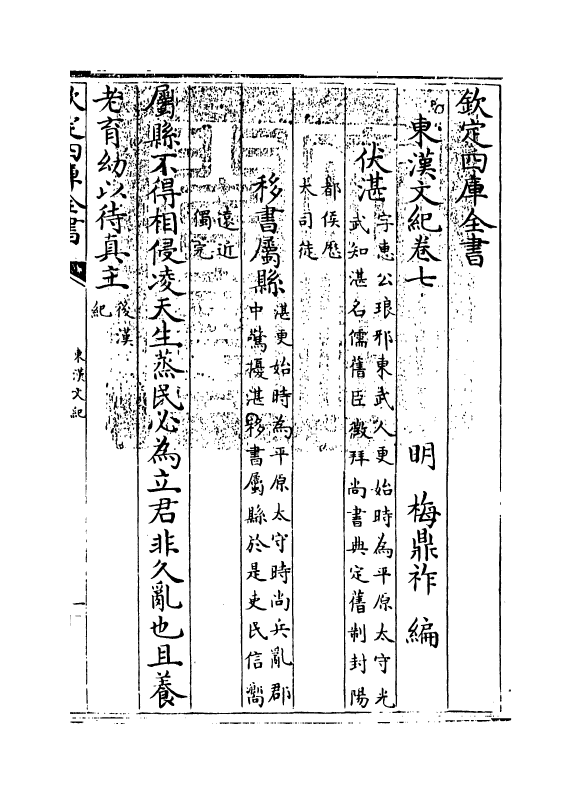 欽定四庫全書
東漢文紀卷七
明 梅鼎祚 編
伏湛
字惠公琅邪東武人更始時為平原太守光
武知湛名儒舊臣徵拜尚書典定舊制封陽
都侯歷
大司徒
移書屬縣
湛更始時為平原太守時尚兵亂郡
中驚擾湛移書屬縣於是吏民信嚮
遠近
獨完
屬縣不得相侵凌天生蒸民必為立君非久亂也且養
老育幼以待真主
後漢
紀
欽定四庫全書
東漢文紀
一